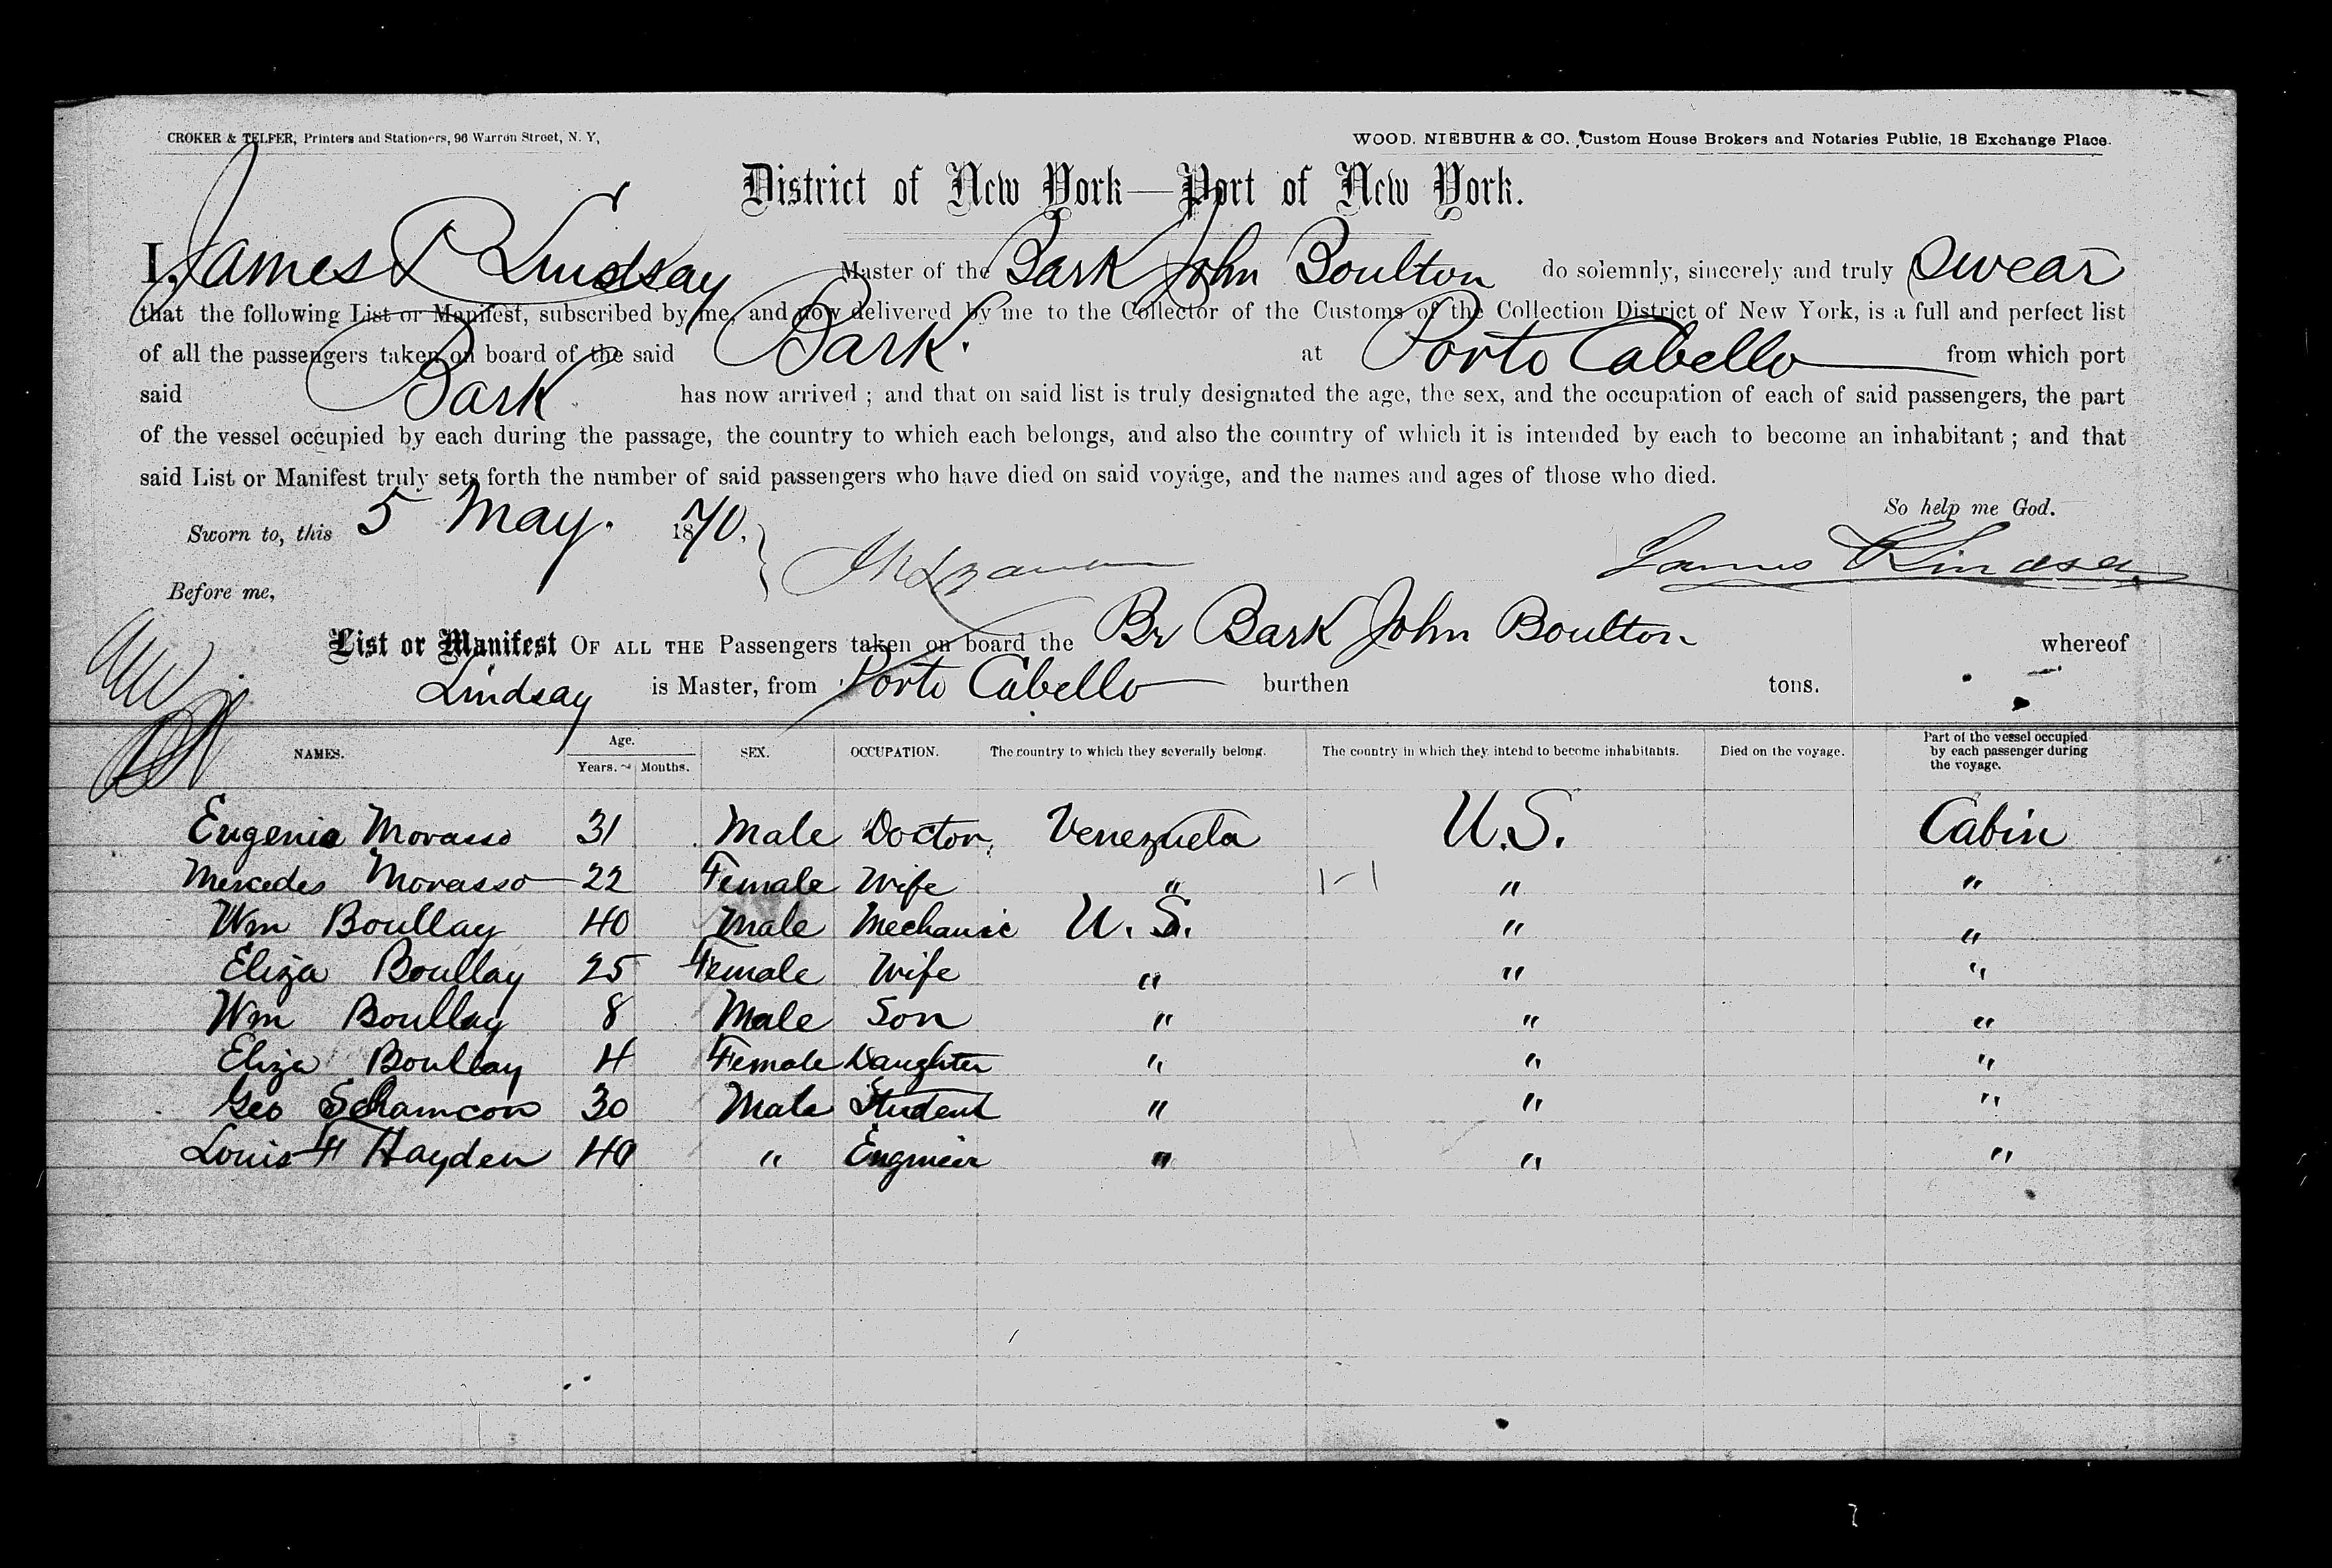 CROKER & TELFER, Printers and Stationers, 96 Warren Street, N. Y,
WOOD. NIEBUHR & CO. Custom House Brokers and Notaries Public, 18 Exchange Place.
District of New York—Port of New York.
I, James R Lindsay Master of the Bark John Boulton do solemnly, sincerely and truly Swear
that the following List or Manifest, subscribed by me, and now delivered by me to the Collector of the Customs of the Collection District of New York, is a full and perfect list
of all the passengers taken on board of the said Bark. at Porto Cabello from which port
said Bark has now arrived ; and that on said list is truly designated the age, the sex, and the occupation of each of said passengers, the part
of the vessel occupied by each during the passage, the country to which each belongs, and also the country of which it is intended by each to become an inhabitant ; and that
said List or Manifest truly sets forth the number of said passengers who have died on said voyage, and the names and ages of those who died.
So help me God.
Sworn to, this 5 May. 1870.
James R Lindsay
Before me,
List or Manifest OF ALL THE Passengers taken on board the Br Bark John Boulton whereof
Lindsay is Master, from Porto Cabello burthen tons.
NAMES. Age. Years. Months. SEX. OCCUPATION. The country to which they severally belong. The country in which they intend to become inhabitants. Died on the voyage. Part of the vessel occupied by each passenger during the voyage.
Eugenia Morasso 31 Male Doctor. Venezuela U.S. Cabin
Mercedes Morasso 22 Female Wife " " "
Wm Boullay 40 Male Mechanic U.S. " "
Eliza Boullay 25 Female Wife " " "
Wm Boullay 8 Male Son " " "
Eliza Boullay 4 Female Daughter " " "
Geo 30 Male Student " " "
Louis H Hayden 40 " Engineir " " "